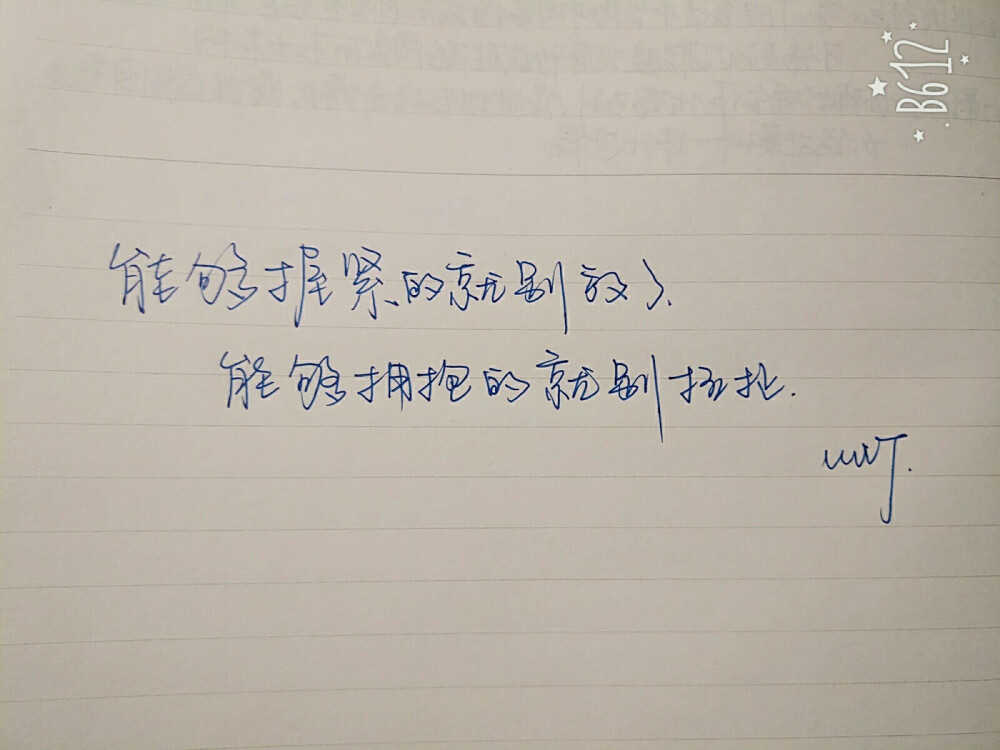 B612
能够握紧的就别放了.
能够拥抱的就别拉扯.